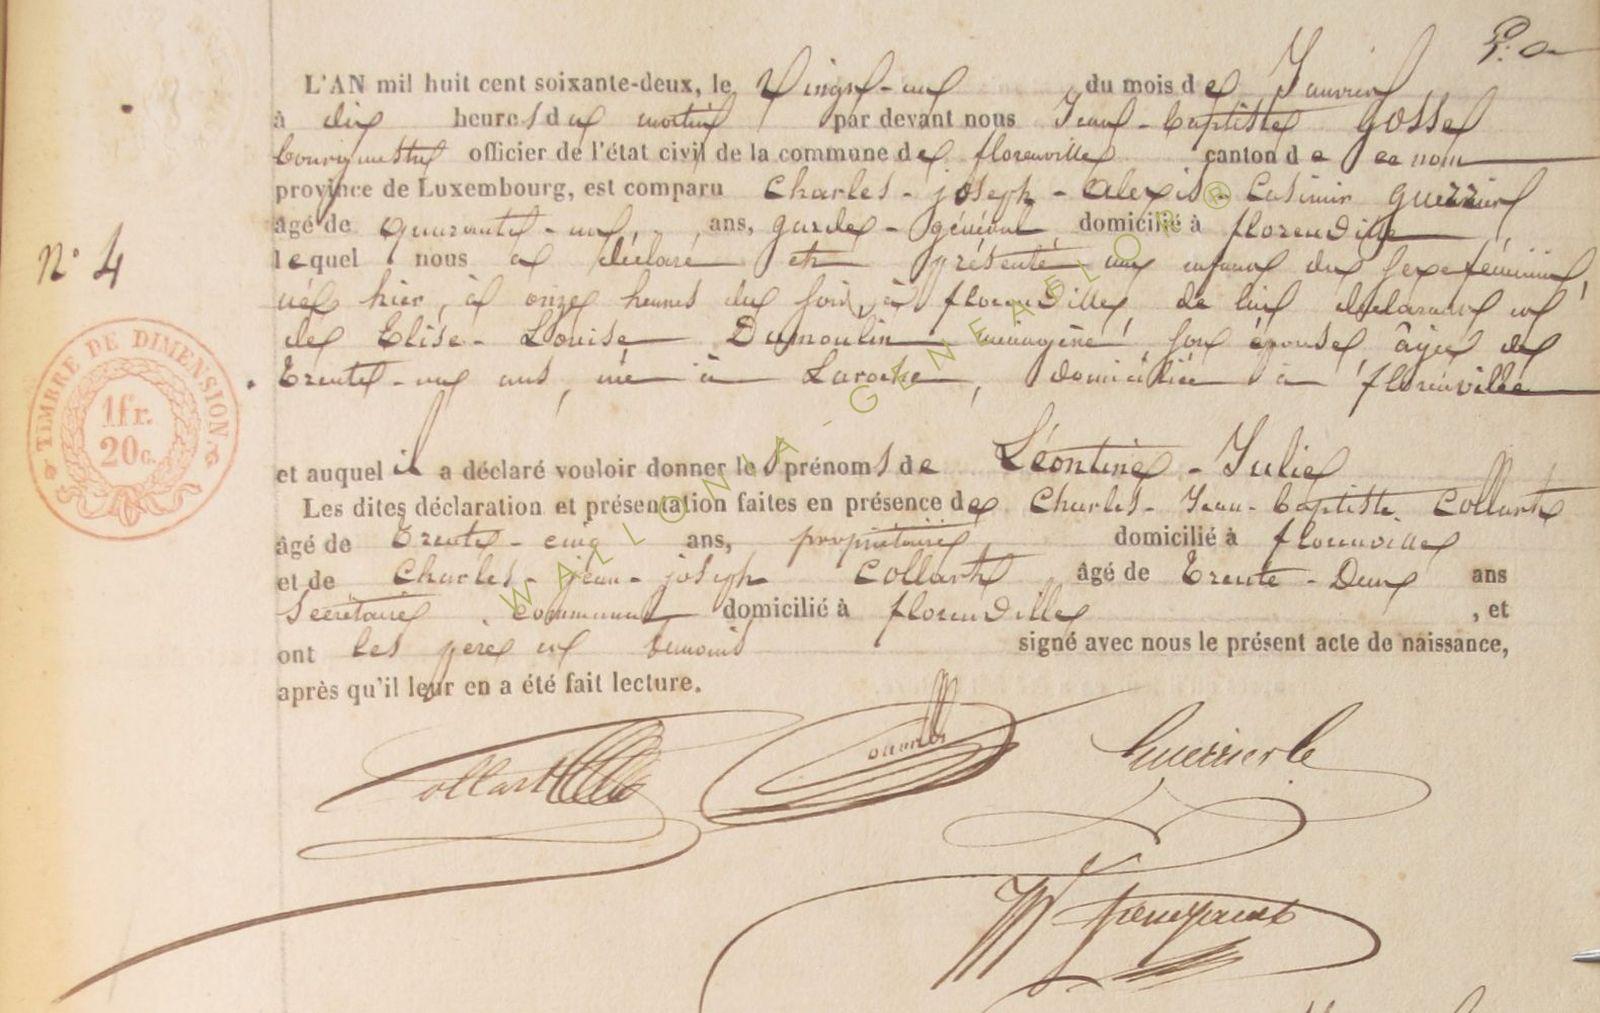 L'AN mil huit cent soixante-deux, le Vingt-un du mois de Janvier
à dix heures du matin par devant nous Jean-baptiste Gosse
bourgmestre officier de l'état civil de la commune de florenville canton de ce nom
province de Luxembourg, est comparu Charles-joseph-Alexis-Casimir Guerrier
âgé de quarante-un, ans, garde-général domicilié à florenville,
lequel nous a déclaré et présenté un enfant du sexe féminin,
née hier, à onze heures du soir, à florenville, de lui déclarant et
de Elise-Louise Dumoulin ménagère, son épouse, âgée de
trente-un ans, née à Laroche, domiciliée à florenville
N° 4
TIMBRE DE DIMENSION.
1fr.
20c.
et auquel il a déclaré vouloir donner les prénoms de Léontine-Julie
Les dites déclaration et présentation faites en présence de Charles-Jean-baptiste Collart
âgé de trente-cinq ans, propriétaire, domicilié à florenville
et de Charles-jean-joseph Collart âgé de trente-Deux ans
Secrétaire communal domicilié à florenville, et
ont les père et témoins signé avec nous le présent acte de naissance,
après qu'il leur en a été fait lecture.
Collart Guerrier
WALLONIA-GENEALOR®